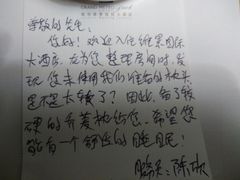 GRAND METRO
尊敬的先生:
您好! 欢迎入住维景国际
大酒店, 在为您整理房间时, 发
现您未使用我们准备的枕头
是不是太矮了? 因此, 备了较
硬的荞麦枕给您, 希望您
能有一个舒适的睡眠!
服务员: 陈